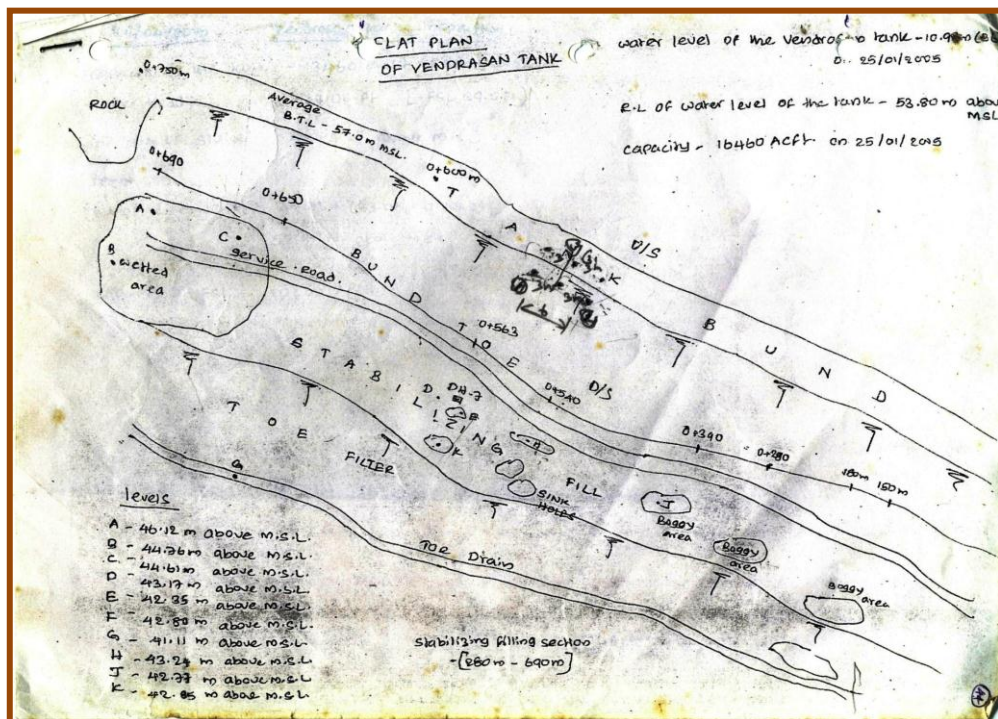 CLAT PLAN
OF VENDRASAN TANK
water level of the tank
25/01/2005
R.L of water level of the tank - 53.80m above
MSL
capacity - 16460 ACft on 25/01/2005
0+750m
ROCK
Average
B.T.L - 57.0m MSL.
0+600m
T A N K
U/S
B U N D
0+690
0+650
A
C
B
wetted
area
service Road.
B U N D
T O E
0+563
0+540
D/S
0+390
0+280
180m
150m
S T A B I L I Z I N G
FILL
D
DH-7
E
K
H
SINK
HOLES
J
Boggy
area
Boggy
area
Boggy
area
T O E
FILTER
G
TOE Drain
levels
A - 46.12 m above M.S.L.
B - 44.76 m above M.S.L.
C - 44.61m above M.S.L.
D - 43.17 m above M.S.L.
E - 42.35 m above M.S.L.
F - 42.80 m above M.S.L.
G - 41.11 m above M.S.L.
H - 43.24 m above M.S.L.
J - 42.77 m above M.S.L.
K - 42.85 m above M.S.L.
stabilizing filling section
-[280m - 690m]